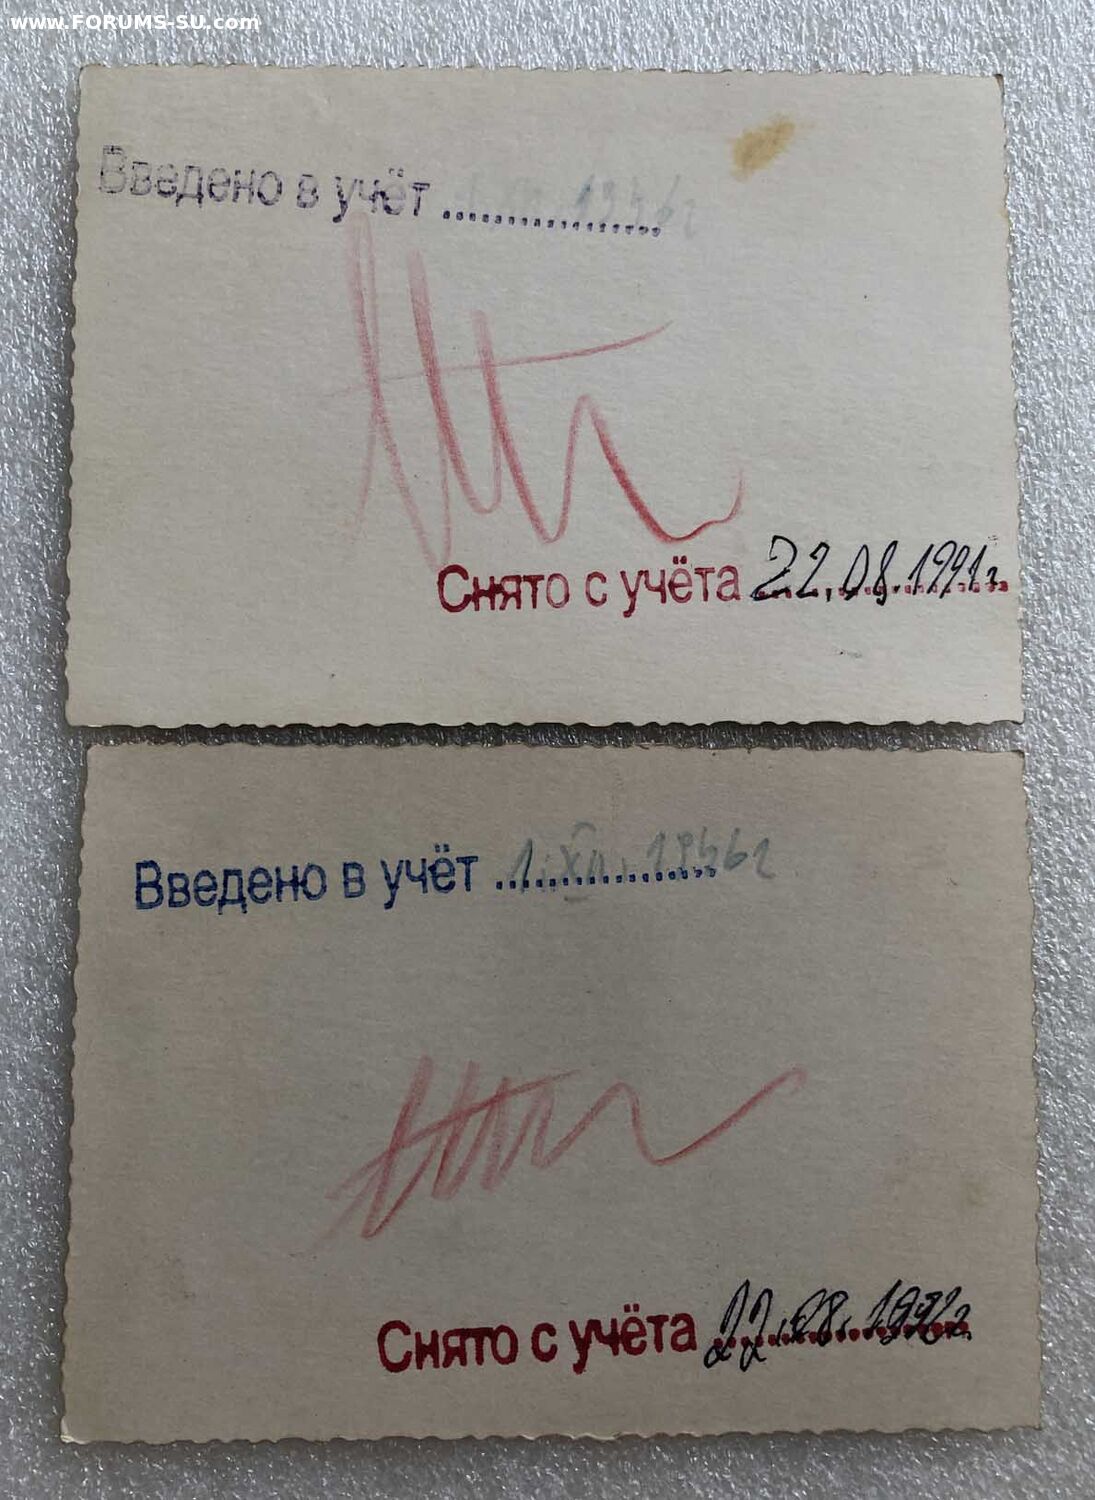 www.FORUMS-SU.com
Введено в учёт
Снято с учёта 22.08.1991г.
Введено в учёт 1.XII.1946г
Снято с учёта 22.08.1991г.